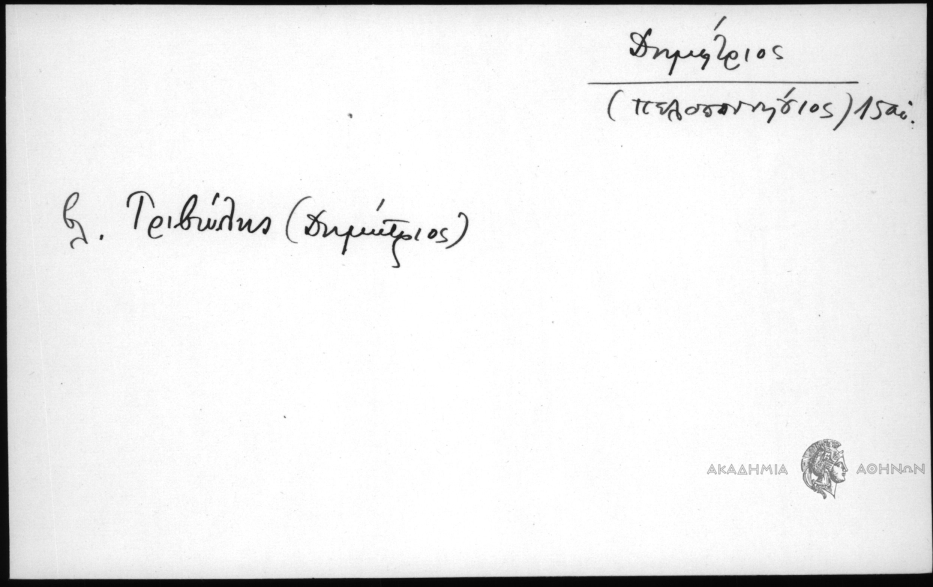 Δημήτριος
(πελοποννήσιος) 15 αἰ.
βλ. Τριβώλης (Δημήτριος)
ΑΚΑΔΗΜΙΑ ΑΘΗΝΩΝ